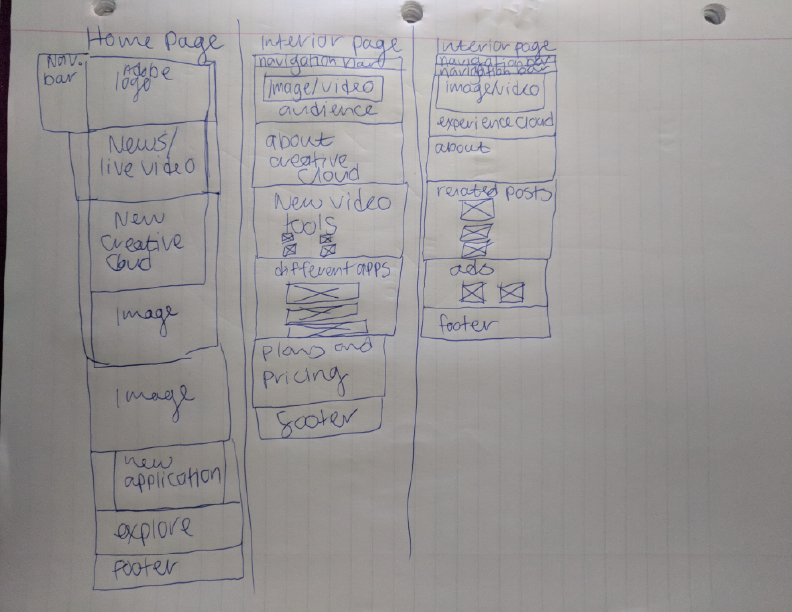 Home Page
Nav.
bar
Adobe
logo
News/
live video
New
Creative
Cloud
Image
Image
new
application
explore
footer
Interior page
navigation bar
Image/video
audience
about
creative
Cloud
New video
tools
different apps
plans and
pricing
footer
Interior page
navigation bar
navigation bar
image/video
experience cloud
about
related posts
ads
footer